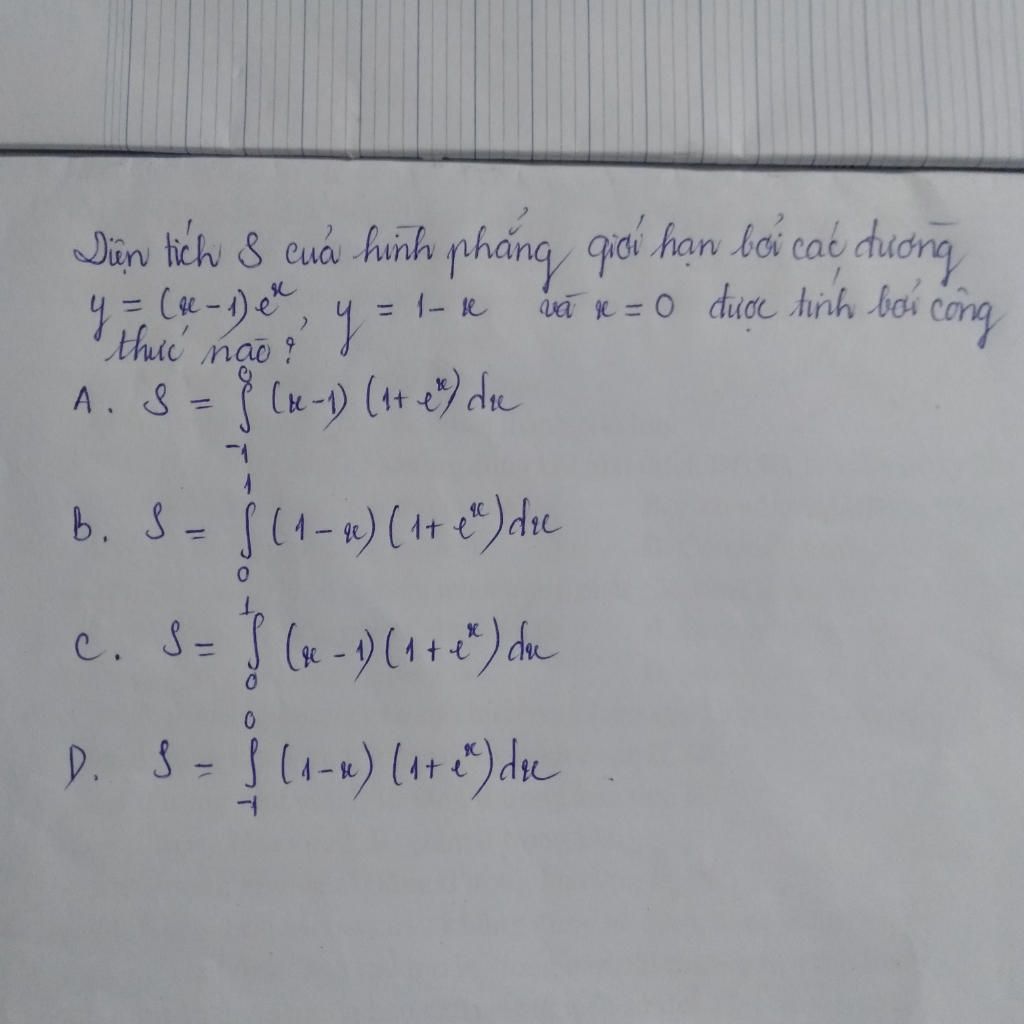 Diện tích S của hình phẳng giới hạn bởi các đường
y = (x-1)eˣ, y = 1-x và x = 0 được tính bởi công
thức nào?
A. S = ∫₋₁⁰ (x-1)(1+eˣ)dx
B. S = ∫₀¹ (1-x)(1+eˣ)dx
C. S = ∫₀¹ (x-1)(1+eˣ)dx
D. S = ∫₋₁⁰ (1-x)(1+eˣ)dx